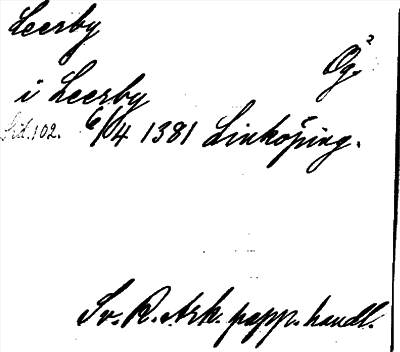 Leerby
Ög.
i Leerby
Sid. 102. 6/4 1381 Linköping.
Sv. R. Ark. papp. handl.